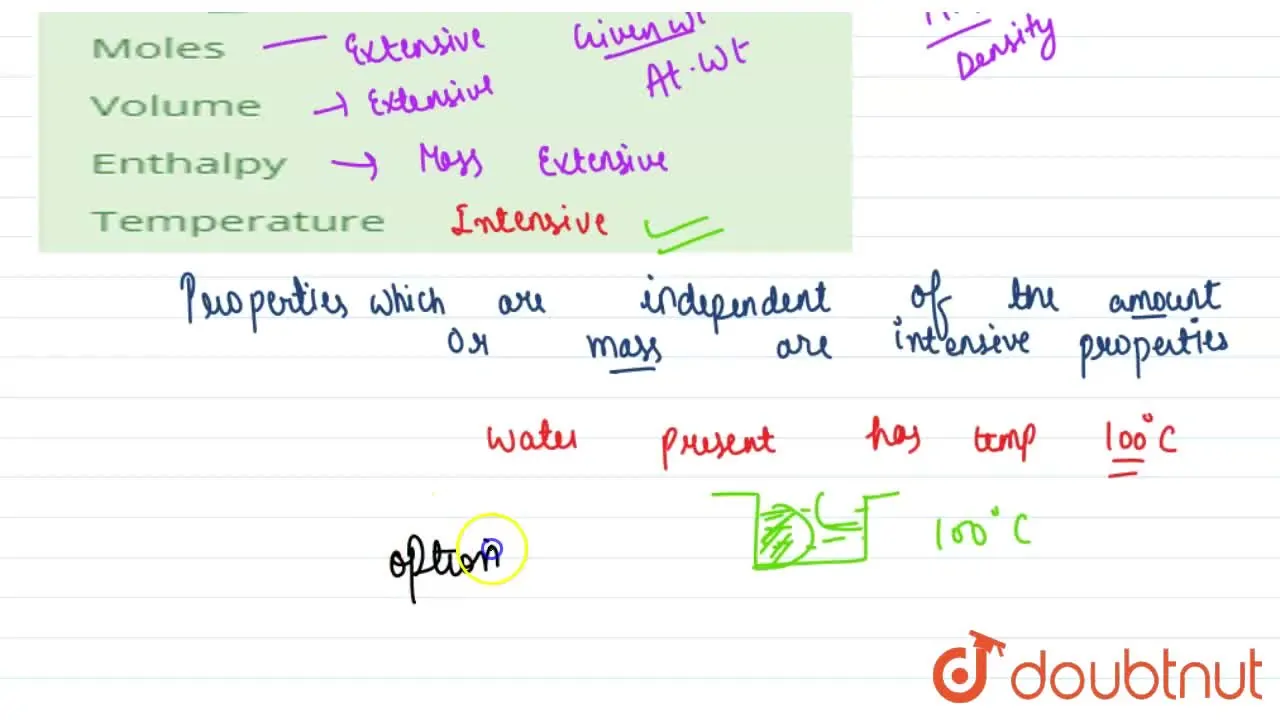 Moles — Extensive Given wt
At. Wt
Density
Volume → Extensive
Enthalpy → Mass Extensive
Temperature Intensive
Properties which are independent of the amount
Or mass are intensive properties
water present has temp 100°C
100°C
option
doubtnut